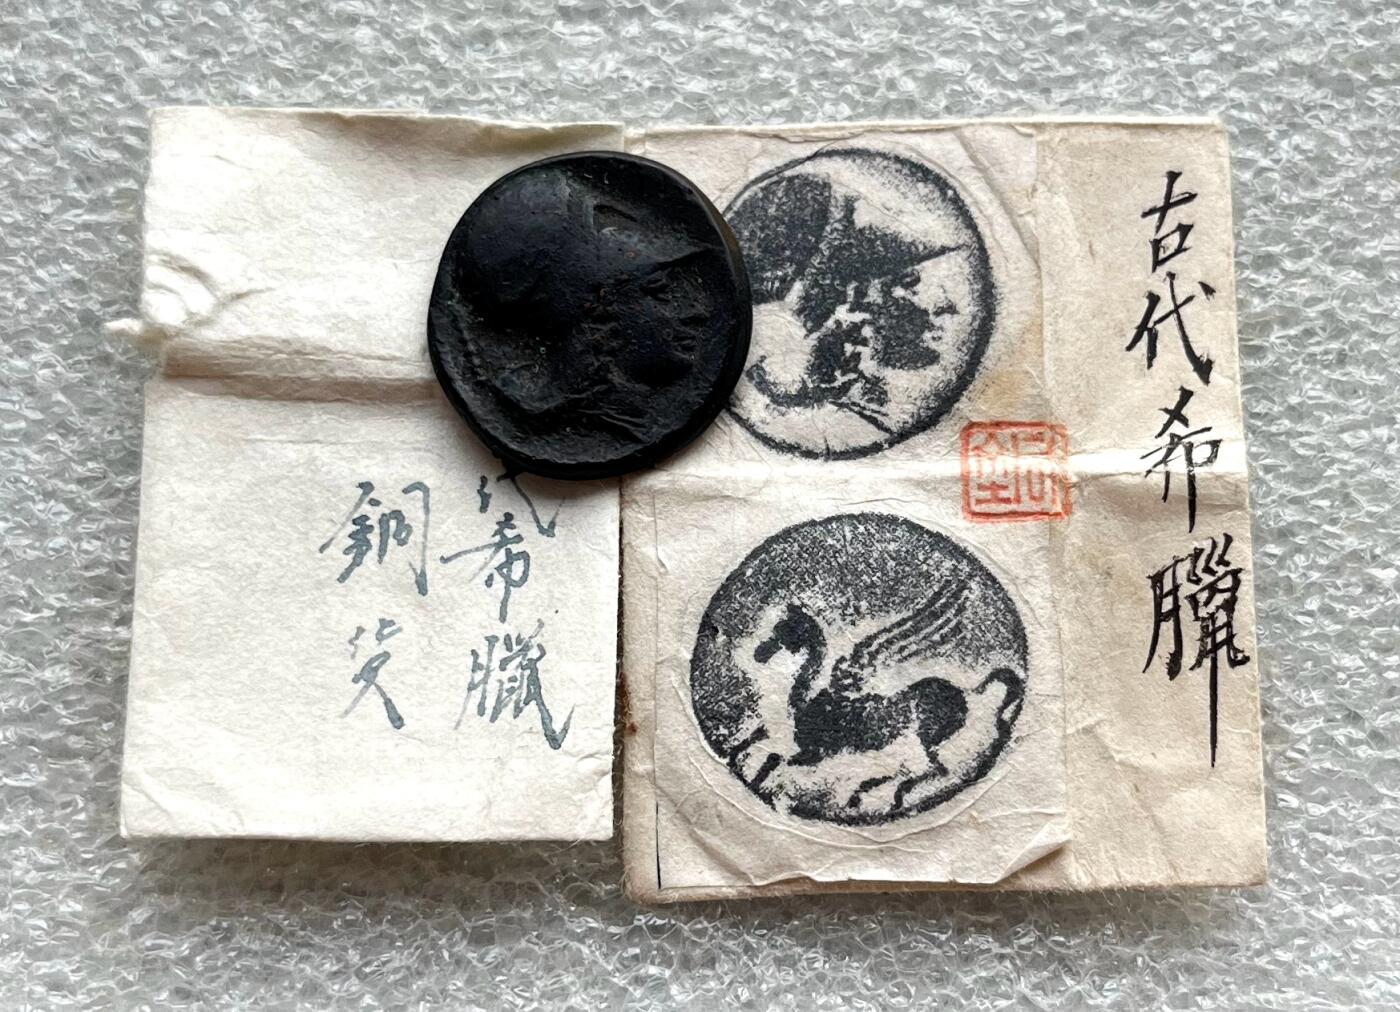 古代希臘
代希臘
銅